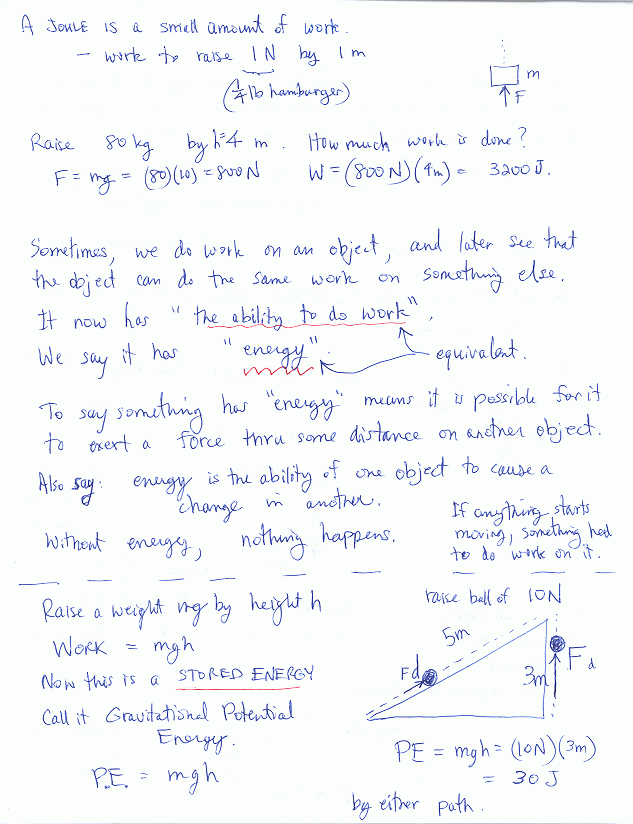 A JOULE IS a small amount of work.
- work to raise 1N by 1 m
(1/4 lb hamburger)
m
F
Raise 80 kg by h=4 m. How much work is done?
F = mg = (80)(10) = 800N W = (800N)(4m) = 3200 J.
Sometimes, we do work on an object, and later see that
the object can do the same work on something else.
It now has "the ability to do work".
We say it has "energy". equivalent.
To say something has "energy" means it is possible for it
to exert a force thru some distance on another object.
Also say: energy is the ability of one object to cause a
change in another.
Without energy, nothing happens.
If anything starts
moving, something had
to do work on it.
Raise a weight mg by height h
WORK = mgh
Now this is a STORED ENERGY
Call it Gravitational Potential
Energy.
P.E. = mgh
raise ball of 10N
5m
Fd
3m
Fd
PE = mgh = (10N)(3m)
= 30 J
by either path.